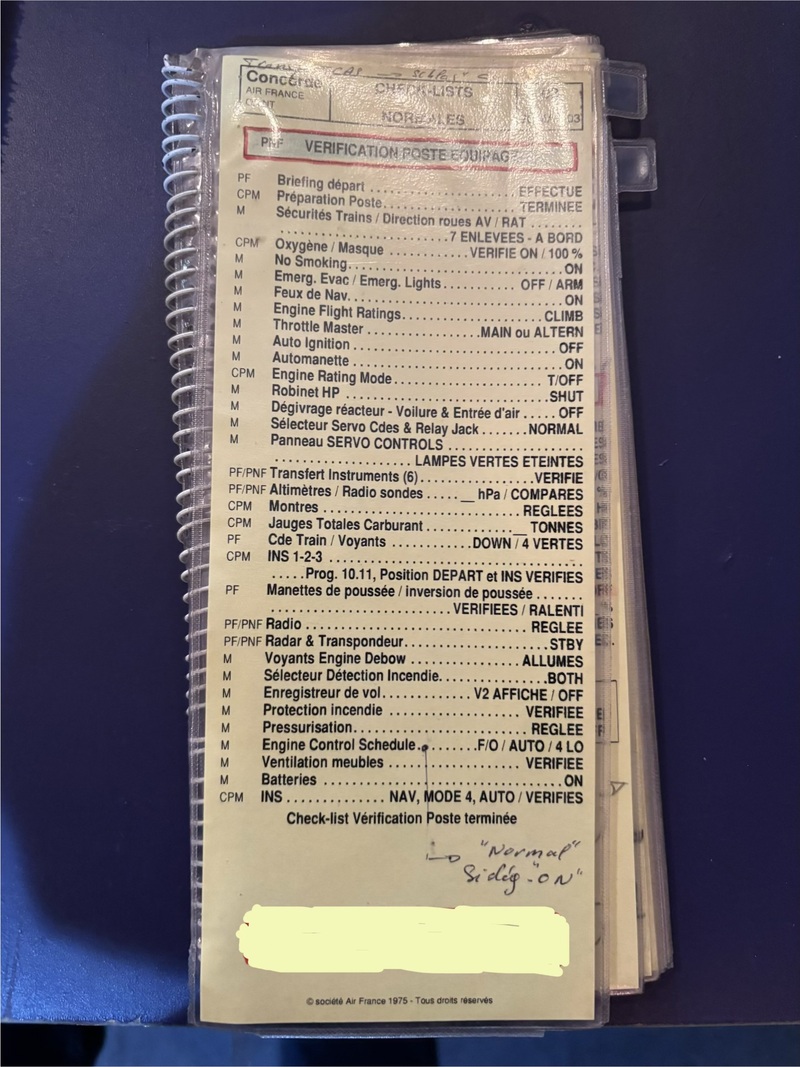 Concorde
AIR FRANCE
CHECK-LISTS
NORMALES
PNF VERIFICATION POSTE EQUIPAGE
PF Briefing départ .................... EFFECTUE
CPM Préparation Poste.................... TERMINEE
M Sécurités Trains / Direction roues AV / RAT ........
.......................7 ENLEVEES - A BORD
CPM Oxygène / Masque ............. VERIFIE ON / 100 %
M No Smoking................................ ON
M Emerg. Evac / Emerg. Lights............ OFF / ARM
M Feux de Nav................................ ON
M Engine Flight Ratings..................... CLIMB
M Throttle Master ................MAIN ou ALTERN
M Auto Ignition ............................. OFF
M Automanette .............................. ON
CPM Engine Rating Mode ...................... T/OFF
M Robinet HP ..............................SHUT
M Dégivrage réacteur - Voilure & Entrée d'air ..... OFF
M Sélecteur Servo Cdes & Relay Jack .......NORMAL
M Panneau SERVO CONTROLS ....................
.................. LAMPES VERTES ETEINTES
PF/PNF Transfert Instruments (6) .................VERIFIE
PF/PNF Altimètres / Radio sondes ..... __ hPa / COMPARES
CPM Montres ............................. REGLEES
CPM Jauges Totales Carburant .............__ TONNES
PF Cde Train / Voyants ............DOWN / 4 VERTES
CPM INS 1-2-3 ...................................
.....Prog. 10.11, Position DEPART et INS VERIFIES
PF Manettes de poussée / inversion de poussée .......
.......................... VERIFIEES / RALENTI
PF/PNF Radio ................................ REGLEE
PF/PNF Radar & Transpondeur.....................STBY
M Voyants Engine Debow ................ ALLUMES
M Sélecteur Détection Incendie................BOTH
M Enregistreur de vol............. V2 AFFICHE / OFF
M Protection incendie ..................... VERIFIEE
M Pressurisation.......................... REGLEE
M Engine Control Schedule..........F/O / AUTO / 4 LO
M Ventilation meubles ..................... VERIFIEE
M Batteries .................................. ON
CPM INS .............. NAV, MODE 4, AUTO / VERIFIES
Check-list Vérification Poste terminée
"Normal"
Si dég "ON"
© société Air France 1975 - Tous droits réservés